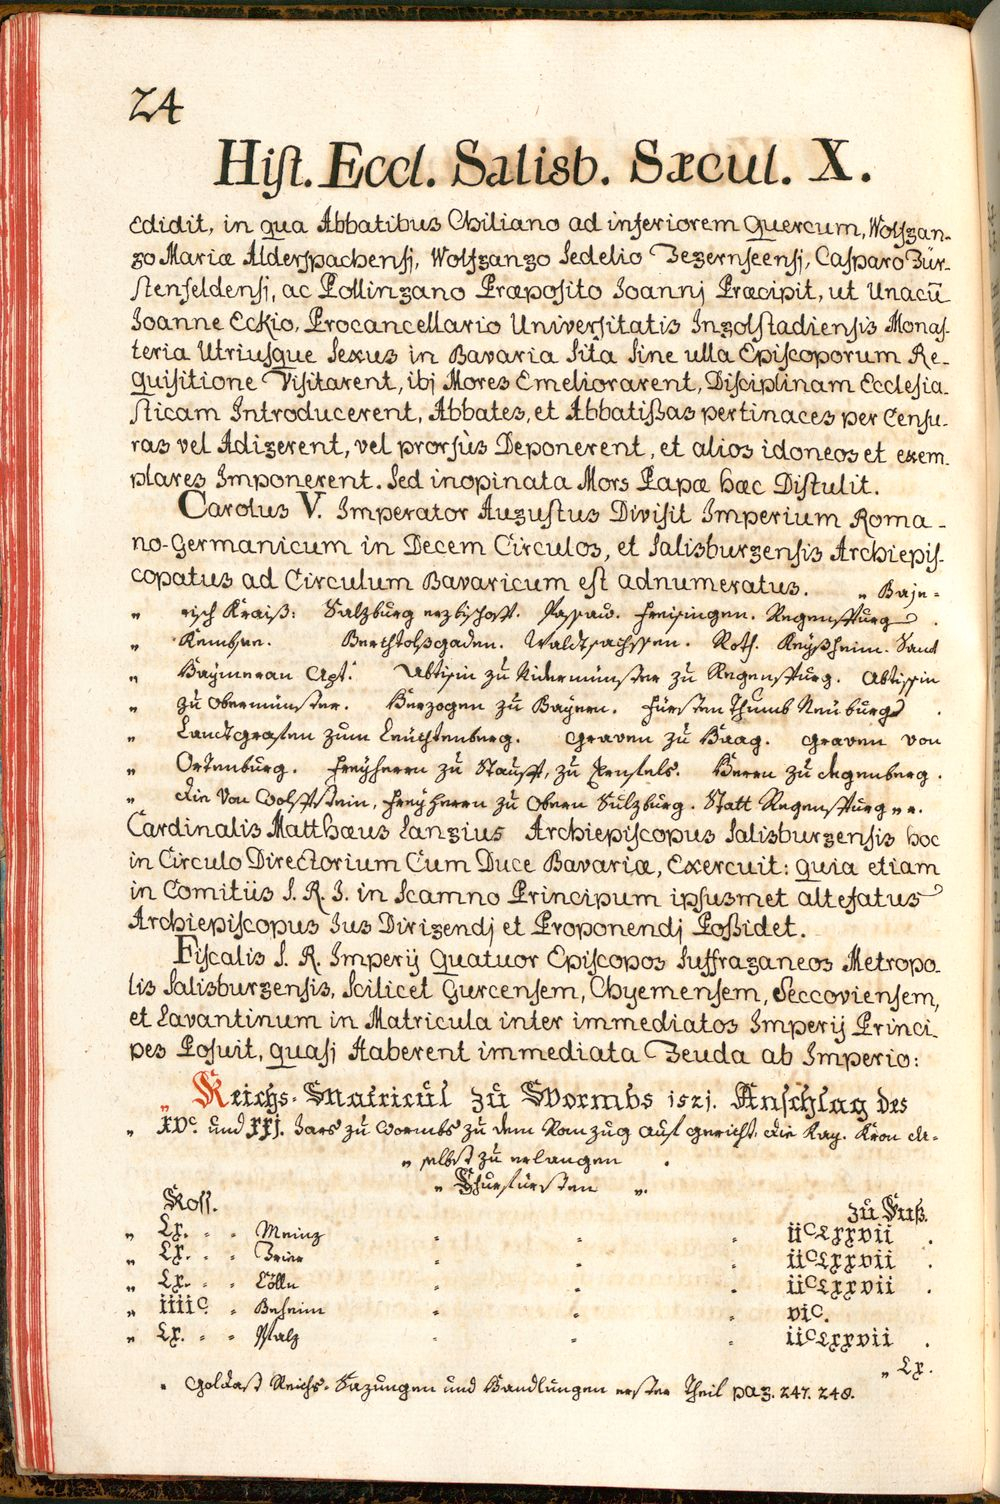 24
Hist. Eccl. Salisb. Sæcul. X.
edidit, in qua Abbatibus Chiliano ad inferiorem Quercum, Wolfgan-
go Mariæ Alderspachensi, Wolfgango Sedelio Tegernseensi, Casparo Für-
stenfeldensi, ac Pollingano Præposito Joannj Præcipit, ut Unacū
Joanne Eckio, Procancellario Universitatis Ingolstadiensis Monas-
teria Utriusque Sexus in Bavaria Sita Sine ulla Episcoporum Re-
quisitione Visitarent, ibj Mores Emeliorarent, Disciplinam Ecclesia-
sticam Introducerent, Abbates, et Abbatißas pertinaces per Censu-
ras vel Adigerent, vel prorsùs Deponerent, et alios idoneos et exem-
plares Imponerent. Sed inopinata Mors Papæ hæc Distulit.
Carolus V. Imperator Augustus Divisit Imperium Roma-
no-Germanicum in Decem Circulos, et Salisburgensis Archiepis-
copatus ad Circulum Bavaricum est adnumeratus. „ Baje-
„ risch Kraiß: Saltzburg erzbischoff. Passaw. Freisingen. Regenspurg.
„ Kembsee. Berchtolßgaden. Waldsachssen. Roth. Keyßheim. Sanct
„ Haymeran Apt. Abtisin zu Nidermünster zu Regenspurg. Abtissin
„ zu Obermünster. Herzogen zu Bayern. Fürstenthumb Neuburg.
„ Landtgrafen zum Leuchtenberg. Graven zu Haag. Graven von
„ Ortenburg. Freyherrn zu Stauff, zu Ernfels. Herrn zu Degenberg.
„ Die Von Wolffstein, Freyherrn zu Obern Sulzburg. Statt Regenspurg „ „.
Cardinalis Matthæus Langius Archiepiscopus Salisburgensis hoc
in Circulo Directorium Cum Duce Bavariæ, Exercuit: quia etiam
in Comitiis S. R. I. in Scamno Principum ipsusmet altefatus
Archiepiscopus Jus Dirigendj et Proponendj Poßidet.
Fiscalis S. R. Imperij Quatuor Episcopos Suffraganeos Metropo-
lis Salisburgensis, Scilicet Gurcensem, Chyemensem, Seccoviensem,
et Lavantinum in Matricula inter immediatos Imperij Princi-
pes Posuit, quasj Haberent immediata Feuda ab Imperio:
„ Reichs-Matricul zu Wormbs 1521. Anschlag des
„ XVc. und XXJ. Jars zu Wormbs zu dem Romzug auff gericht, die Kay. Kron da-
„ selbst zu erlangen.
„ Churfürsten „.
Ross. zu Fuß.
„ LX. „ „ Meinz iicLXXvii.
„ LX. „ „ Trier iicLXXvii.
„ LX. „ „ Cölln iicLXXvii.
„ iiiic. „ Beheim vic.
„ LX. „ „ Pfalz iicLXXvii.
„ LX.
„ Goldast Reichs-Sazungen und Handlungen erster Theil pag. 247. 248.